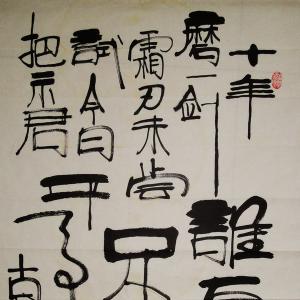 十年
磨一劍
霜刃未嘗
試今日
把示君
誰有
不
平事